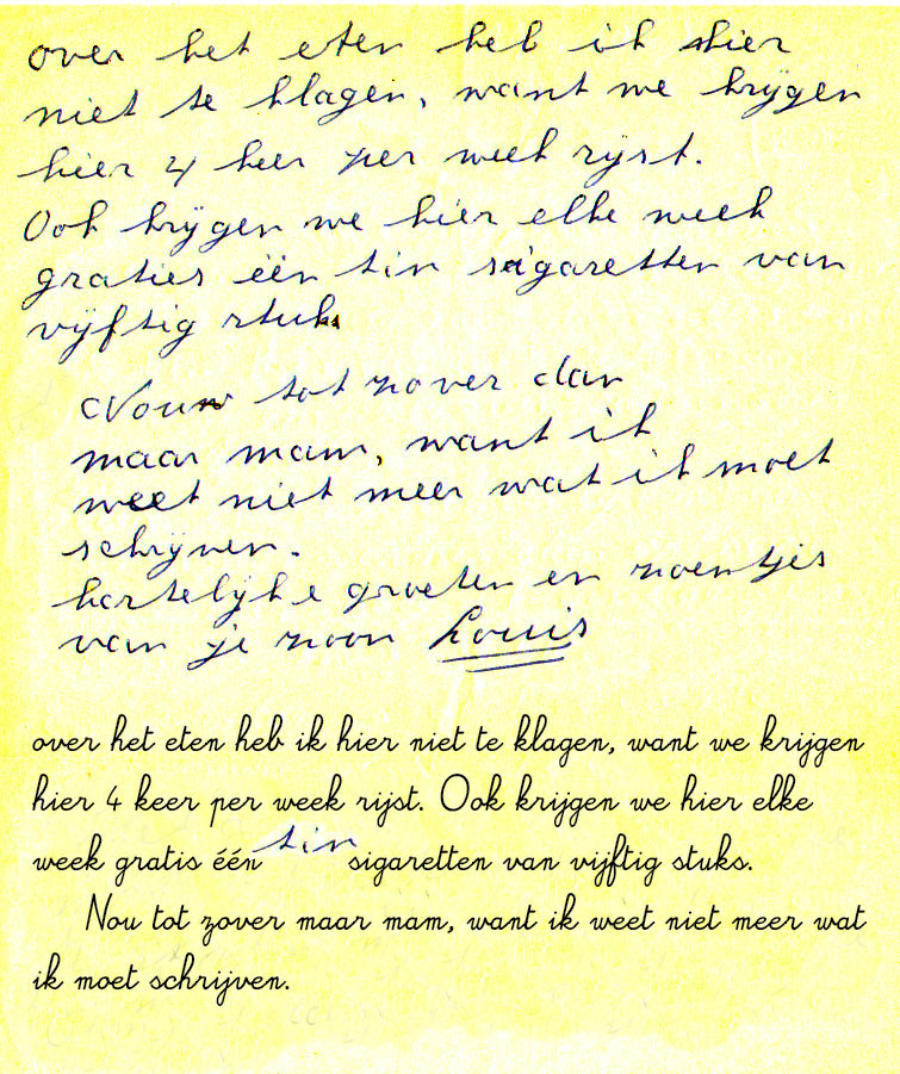 over het eten heb ik hier
niet te klagen, want we krijgen
hier 4 keer per week rijst.
Ook krijgen we hier elke week
graties één tin sigaretten van
vijftig stuks
Nouw tot zover dan
maar mam, want ik
weet niet meer wat ik moet
schrijven.
hartelijke groeten en zoentjes
van je zoon Louis
over het eten heb ik hier niet te klagen, want we krijgen
hier 4 keer per week rijst. Ook krijgen we hier elke
week gratis één tin sigaretten van vijftig stuks.
Nou tot zover maar mam, want ik weet niet meer wat
ik moet schrijven.